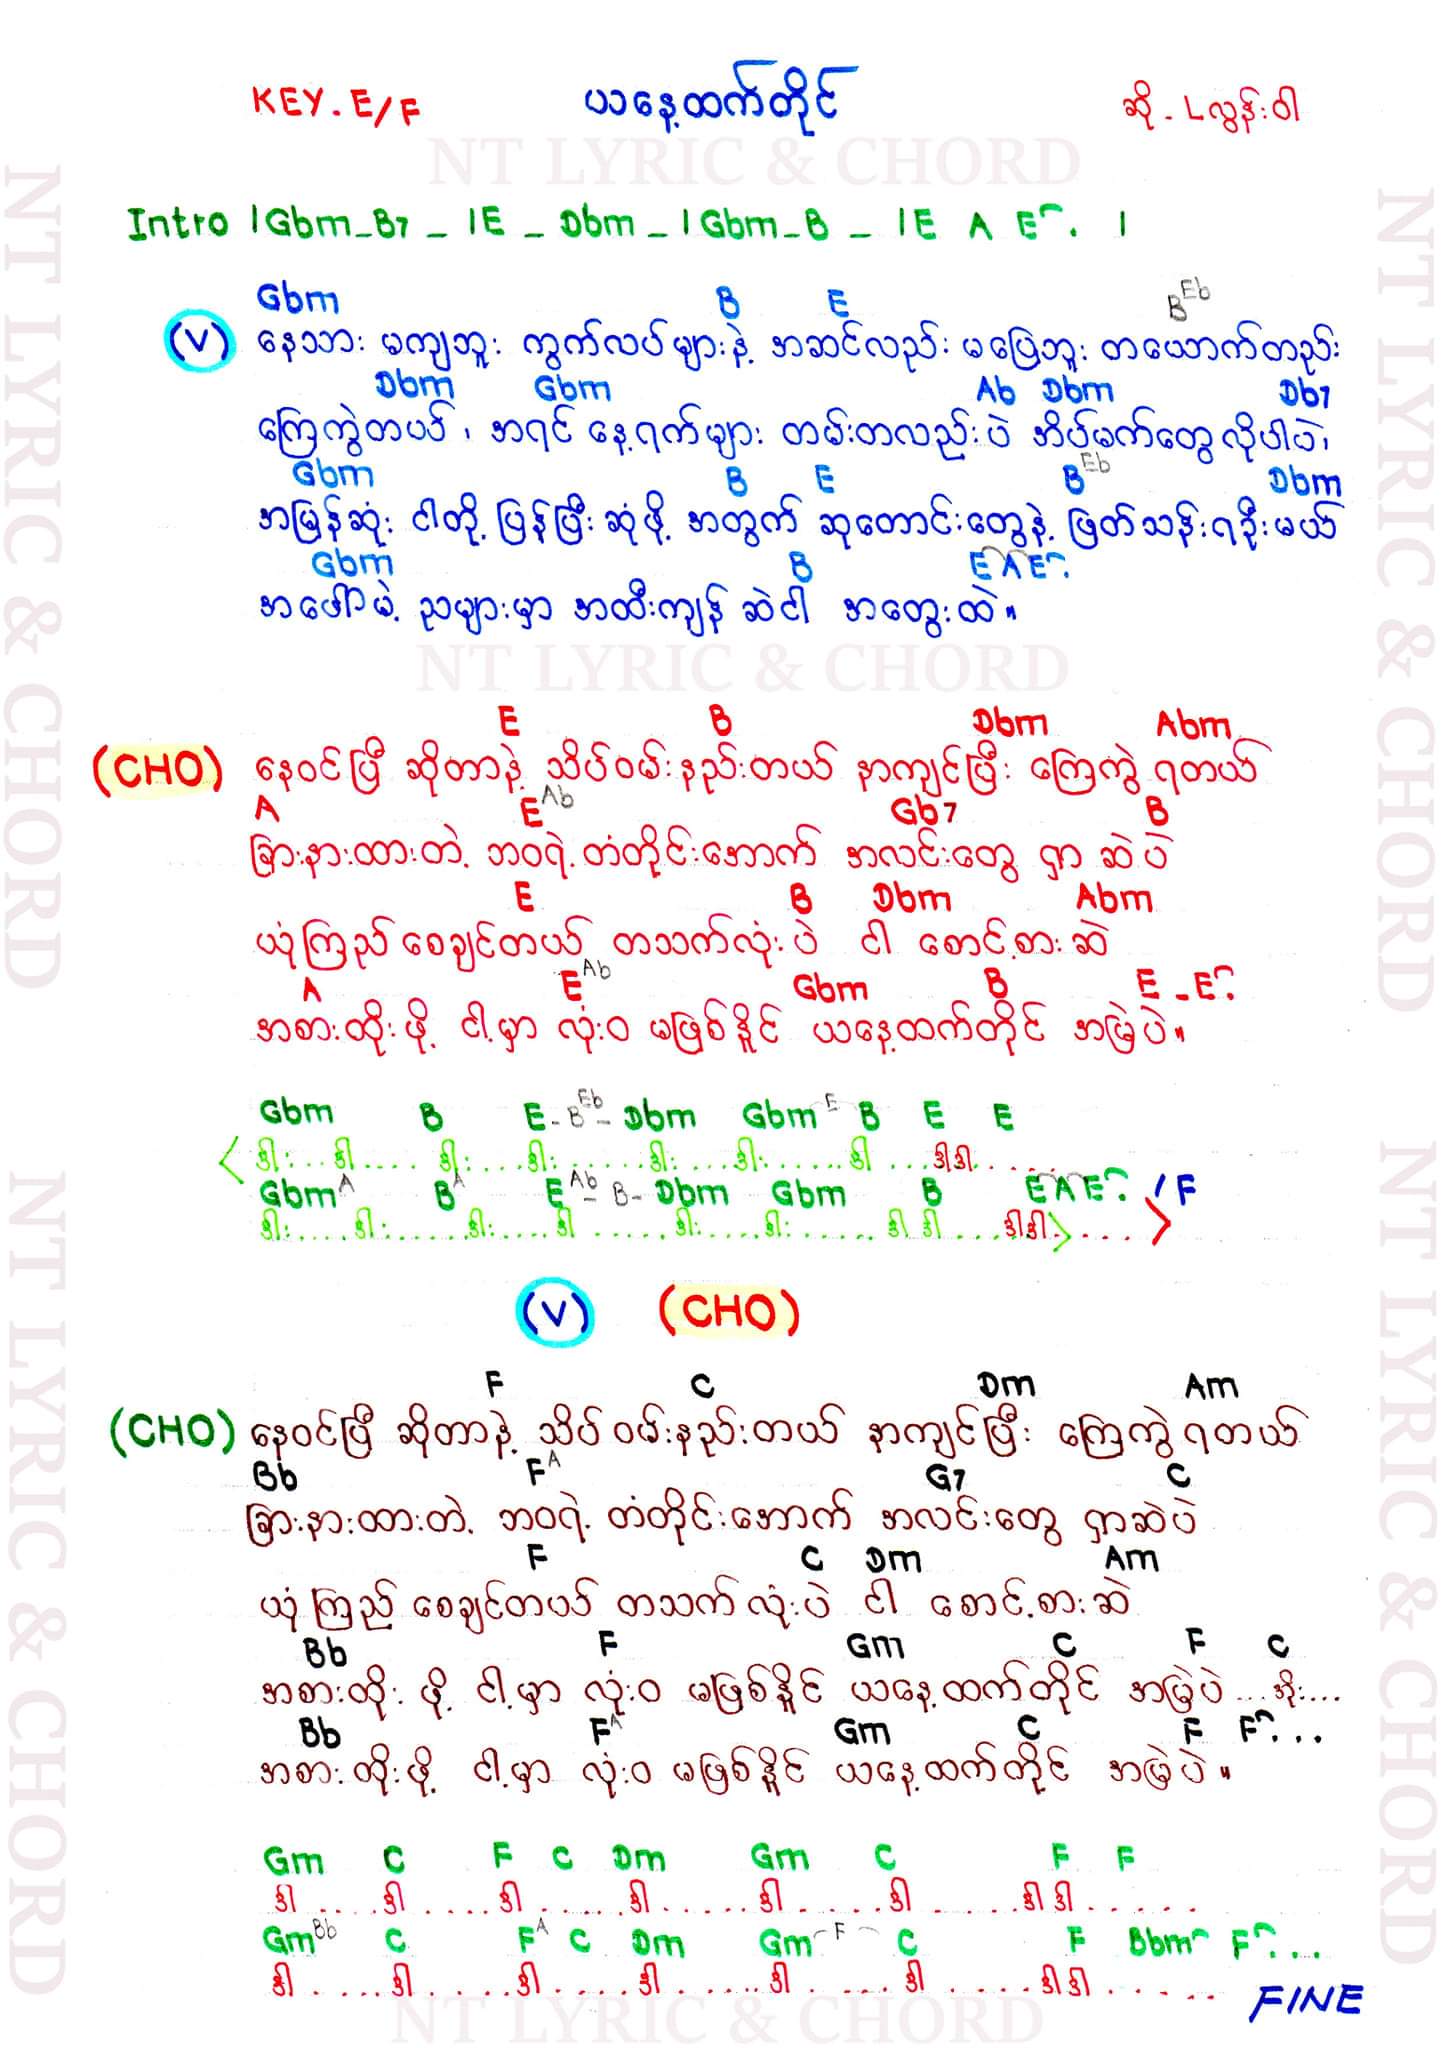 KEY. E/F ယနေ့ထက်တိုင် ဆို - L လွန်းဝါ
NT LYRIC & CHORD
Intro | Gbm _ B7 _ | E _ Dbm _ | Gbm _ B _ | E A E .  |
Gbm B E B Eb
(V) နေသား မကျဘူး ကွက်လပ်များနဲ့ အဆင်လည်း မပြေဘူး တယောက်တည်း
Dbm Gbm Ab Dbm Db7
ကြေကွဲတယ် ၊ အရင် နေ့ရက်များ တမ်းတလည်းပဲ အိပ်မက်တွေလိုပါပဲ၊
Gbm B E B Eb Dbm
အမြန်ဆုံး ငါတို့ ပြန်ပြီးဆုံဖို့ အတွက် ဆုတောင်းတွေနဲ့ ဖြတ်သန်းရဦးမယ်
Gbm B E A E .
အဖော်မဲ့ ညများမှာ အထီးကျန် ဆဲငါ အတွေးထဲ ။
NT LYRIC & CHORD
E B Dbm Abm
(CHO) နေဝင်ပြီ ဆိုတာနဲ့ သိပ်ဝမ်းနည်းတယ် နာကျင်ပြီး ကြေကွဲ ရတယ်
A E Ab Gb7 B
ခြားနားထားတဲ့ ဘဝရဲ့ တံတိုင်းအောက် အလင်းတွေ ရှာ ဆဲပဲ
E B Dbm Abm
ယုံကြည် စေချင်တယ် တသက်လုံးပဲ ငါ စောင့်စားဆဲ
A E Ab Gbm B E - E .
အစားထိုးဖို့ ငါ့မှာ လုံးဝ မဖြစ်နိုင် ယနေ့ထက်တိုင် အမြဲပဲ ။
Gbm B E - B Eb - Dbm Gbm E B E E
< ဒါး...ဒါ.... ဒါး....ဒါး......ဒါး....ဒါး......ဒါ ...ဒါဒါ......
Gbm A B A E Ab - B - Dbm Gbm B E A E . / F
ဒါး....ဒါး.......ဒါး....ဒါ ......ဒါး....ဒါး......ဒါ ဒါ ...ဒါဒါ > .... >
(V) (CHO)
F C Dm Am
(CHO) နေဝင်ပြီ ဆိုတာနဲ့ သိပ်ဝမ်းနည်းတယ် နာကျင်ပြီး ကြေကွဲ ရတယ်
Bb F A G7 C
ခြားနားထားတဲ့ ဘဝရဲ့ တံတိုင်းအောက် အလင်းတွေ ရှာဆဲပဲ
F C Dm Am
ယုံကြည် စေချင်တယ် တသက်လုံးပဲ ငါ စောင့်စားဆဲ
Bb F Gm C F C
အစားထိုး ဖို့ ငါ့မှာ လုံးဝ မဖြစ်နိုင် ယနေ့ထက်တိုင် အမြဲပဲ ...အိုး...
Bb F A Gm C F F ...
အစားထိုးဖို့ ငါ့မှာ လုံးဝ မဖြစ်နိုင် ယနေ့ထက်တိုင် အမြဲပဲ ။
Gm C F C Dm Gm C F F
ဒါ.....ဒါ.....ဒါ......ဒါ......ဒါ......ဒါ......ဒါဒါ......
Gm Bb C F A C Dm Gm F C F Bbm F ...
ဒါ.....ဒါ.....ဒါ......ဒါ......ဒါ......ဒါ......ဒါဒါ......
FINE
NT LYRIC & CHORD
NT LYRIC & CHORD
NT LYRIC & CHORD
NT LYRIC & CHORD
NT LYRIC & CHORD